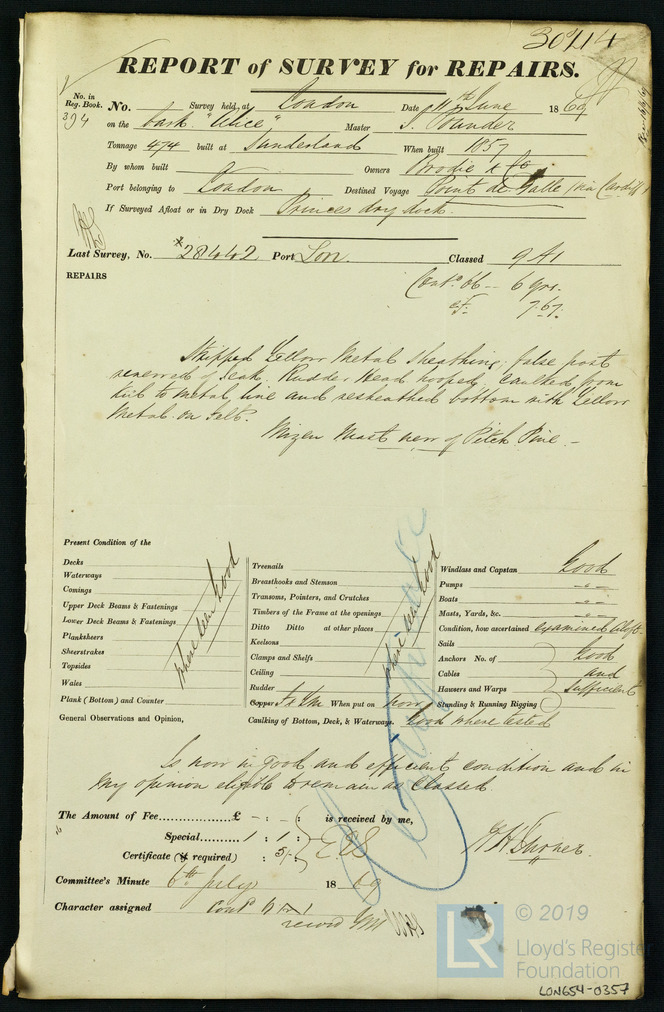 30414
REPORT of SURVEY for REPAIRS.
No. in Reg. Book. 394 No. Survey held, at London Date 11th June 1869
on the bark "Alice" Master J. Pounder
Tonnage 474 built at Sunderland When built 1857
By whom built Owners Brodie & Co
Port belonging to London Destined Voyage Point de Galle via Cardiff
If Surveyed Afloat or in Dry Dock Princes dry dock.
Last Survey, No. 28442 Port Lon. Classed 9 A1
REPAIRS Cont. 66 -- 6 yrs.
7.67.
Stripped Yellow Metal Sheathing; false post
renewed of teak, Rudder Head hooped, Caulked from
to Metal line and resheathed bottom with Yellow
Metal on Felt.
Mizen Mast new of Pitch Pine. -
Present Condition of the
Decks
Waterways
Comings
Upper Deck Beams & Fastenings
Lower Deck Beams & Fastenings
Planksheers
Sheerstrakes
Topsides
Wales
Plank (Bottom) and Counter
where seen Good
General Observations and Opinion,
Treenails
Breasthooks and Stemson
Transoms, Pointers, and Crutches
Timbers of the Frame at the openings
Ditto Ditto at other places
Keelsons
Clamps and Shelfs
Ceiling
Rudder
where seen Good
Copper When put on now
Caulking of Bottom, Deck, & Waterways. Good where tested
Windlass and Capstan Good
Pumps -"-
Boats -"-
Masts, Yards, &c. -"-
Condition, how ascertained examined Aloft.
Sails
Anchors No. of Good
Cables and
Hawsers and Warps Sufficient
Stunding & Running Rigging
Is now in good and efficient condition and in
my opinion eligible to remain as Classed.
The Amount of Fee £ - : - : is received by me,
Special 1 : 1 :
Certificate (if required) : 5/-
Committee's Minute 6th July 1869
Character assigned
record
© 2019
LR Lloyd's Register
Foundation
LON654-0357